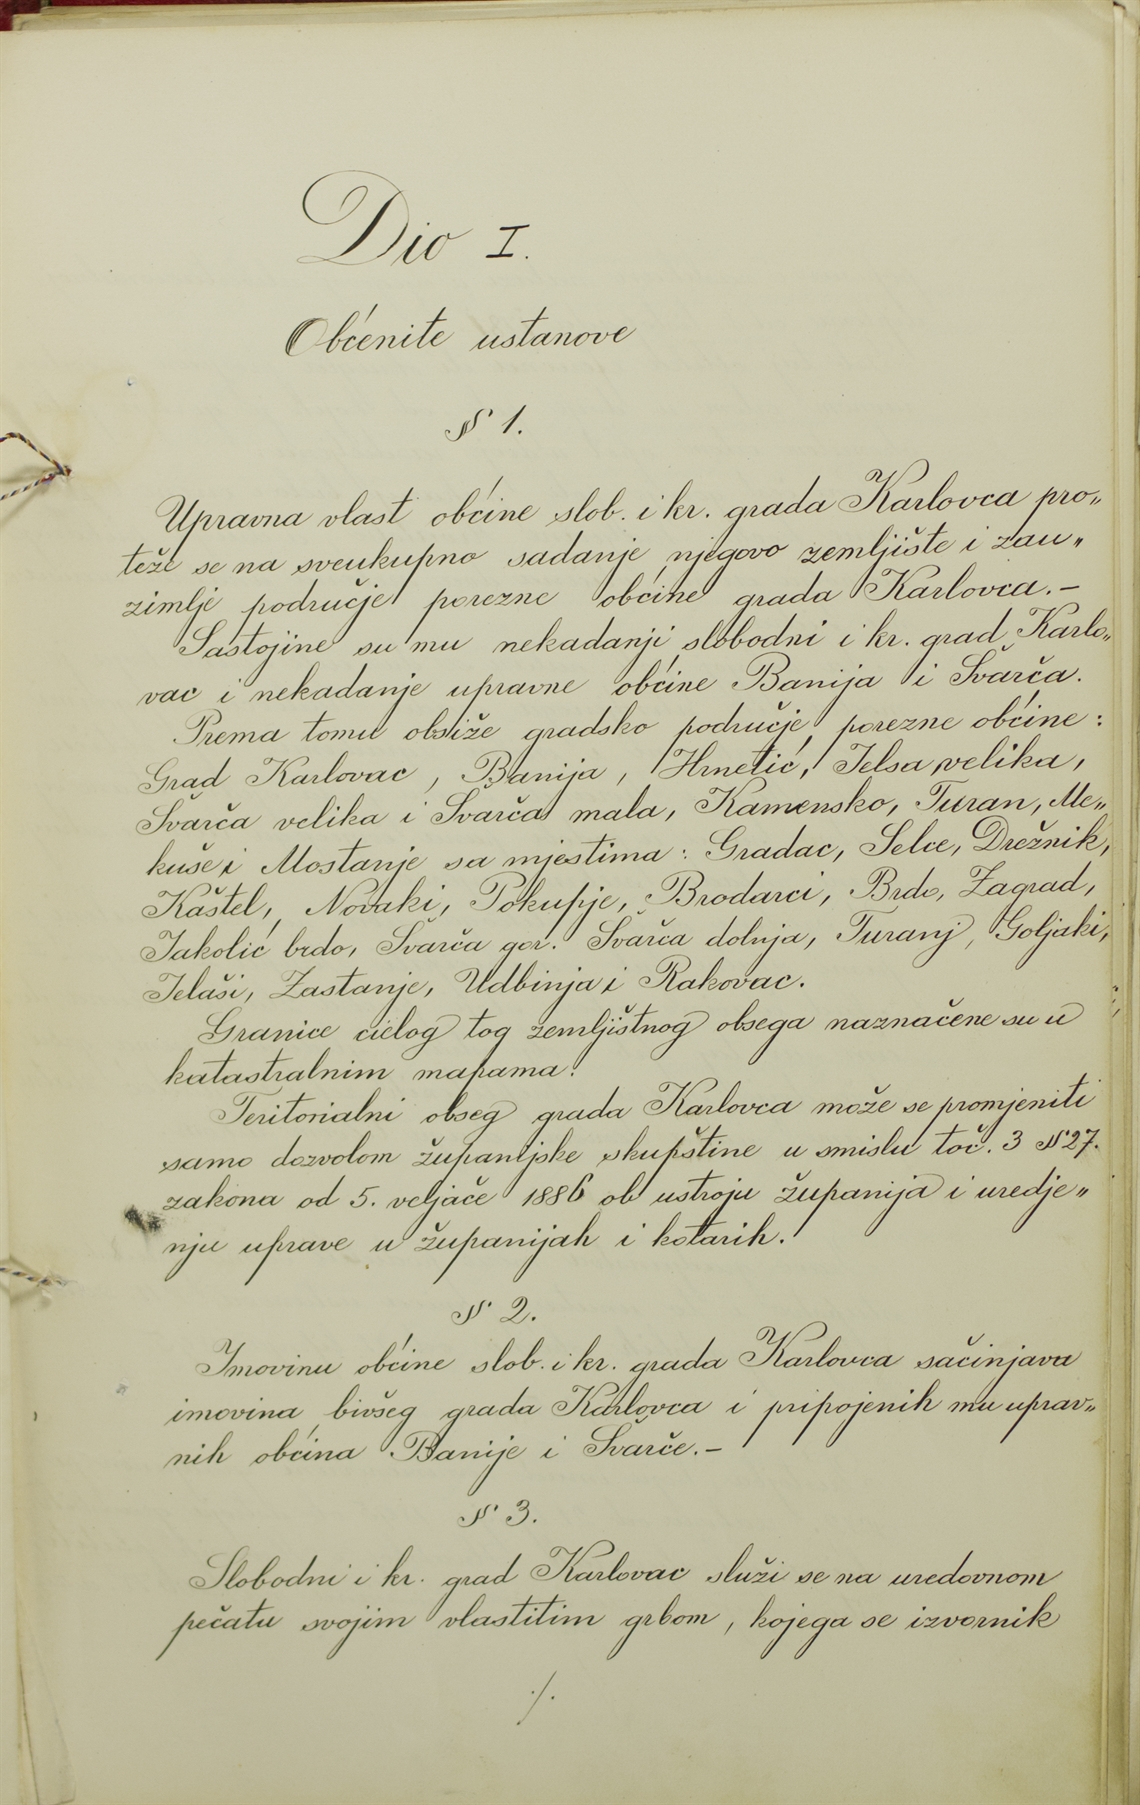 Dio I.
Obćenite ustanove
§ 1.
Upravna vlast obćine slob. i kr. grada Karlovca pro„
teže se na sveukupno sadanje njegovo zemljište i zau„
zimlje područje porezne obćine grada Karlovca.–
Sastojine su mu nekadanji slobodni i kr. grad Karlo„
vac i nekadanje upravne obćine Banija i Švarča.
Prema tomu obsiže gradsko područje porezne obćine:
Grad Karlovac, Banija, Hrnetić, Jelsa velika,
Švarča velika i Švarča mala, Kamensko, Turan, Me„
kuše i Mostanje sa mjestima: Gradac, Selce, Drežnik,
Kaštel, Novaki, Pokupje, Brodarci, Brdo, Zagrad,
Jakolić brdo, Švarča gor. Švarča dolnja, Turanj, Goljaki,
Jelaši, Zastanje, Udbinja i Rakovac.
Granice cielog tog zemljištnog obsega naznačene su u
katastralnim mapama.
Teritorialni obseg grada Karlovca može se promjeniti
samo dozvolom županijske skupštine u smislu toč. 3 § 27.
zakona od 5. veljače 1886 ob ustroju županija i uredje„
nju uprave u županijah i kotarih.
§ 2.
Imovinu obćine slob. i kr. grada Karlovca sačinjava
imovina bivšeg grada Karlovca i pripojenih mu uprav„
nih obćina Banije i Švarče.–
§ 3.
Slobodni i kr. grad Karlovac služi se na uredovnom
pečatu svojim vlastitim grbom, kojega se izvornik
./.